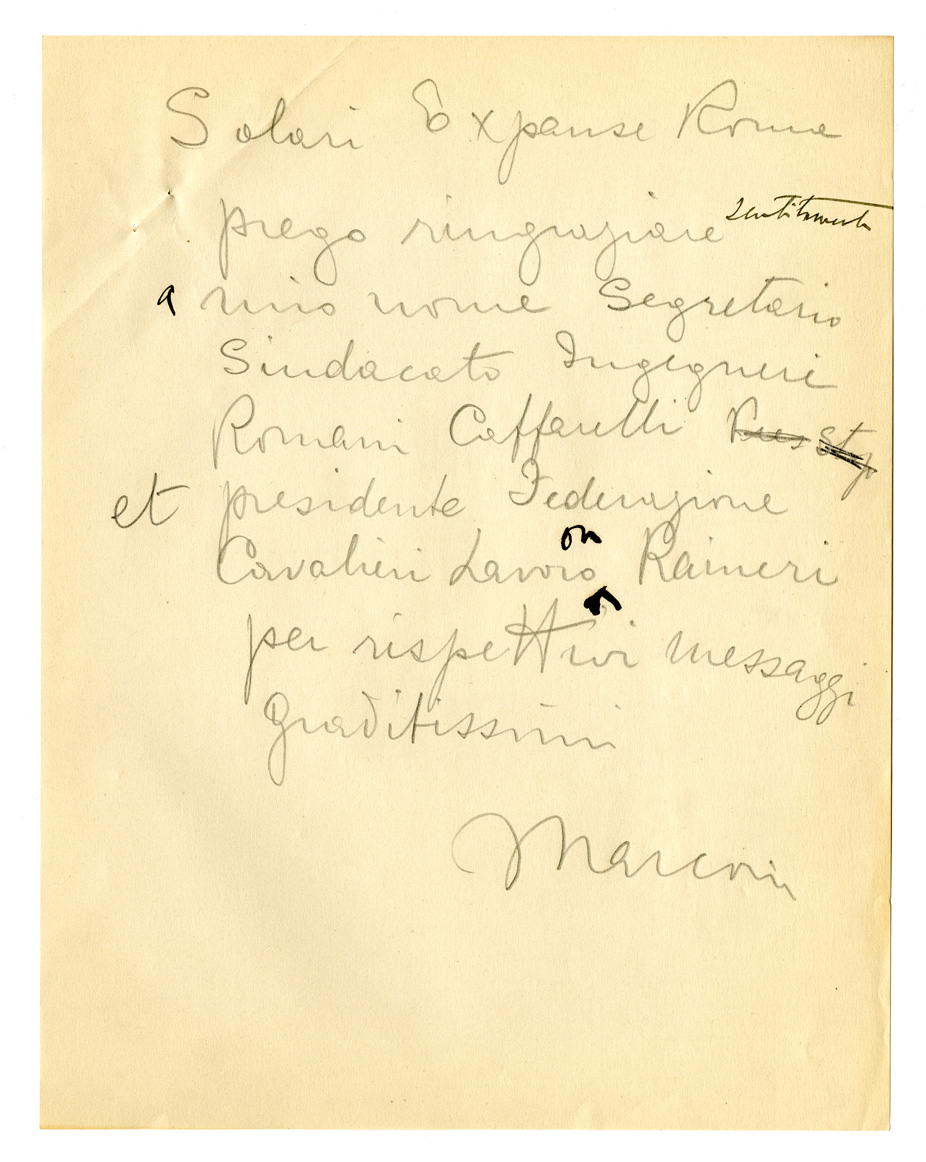 Solari Expanse Roma
prego ringraziare sentitamente
a mio nome Segretario
Sindacato Ingegneri
Romani Caffarelli Pres Stop
et presidente Federazione
Cavalieri Lavoro on Raineri
per rispettivi messaggi
graditissimi
Marconi